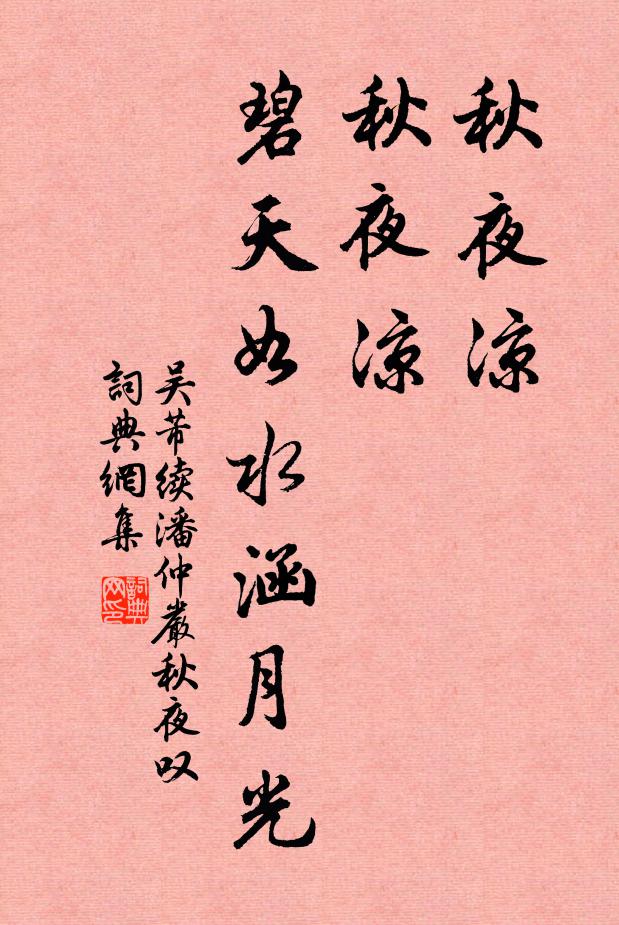 秋夜凉
秋夜凉
碧天如水涵月光
吴芾续潘仲嚴秋夜叹
詞典網集
詞典網印